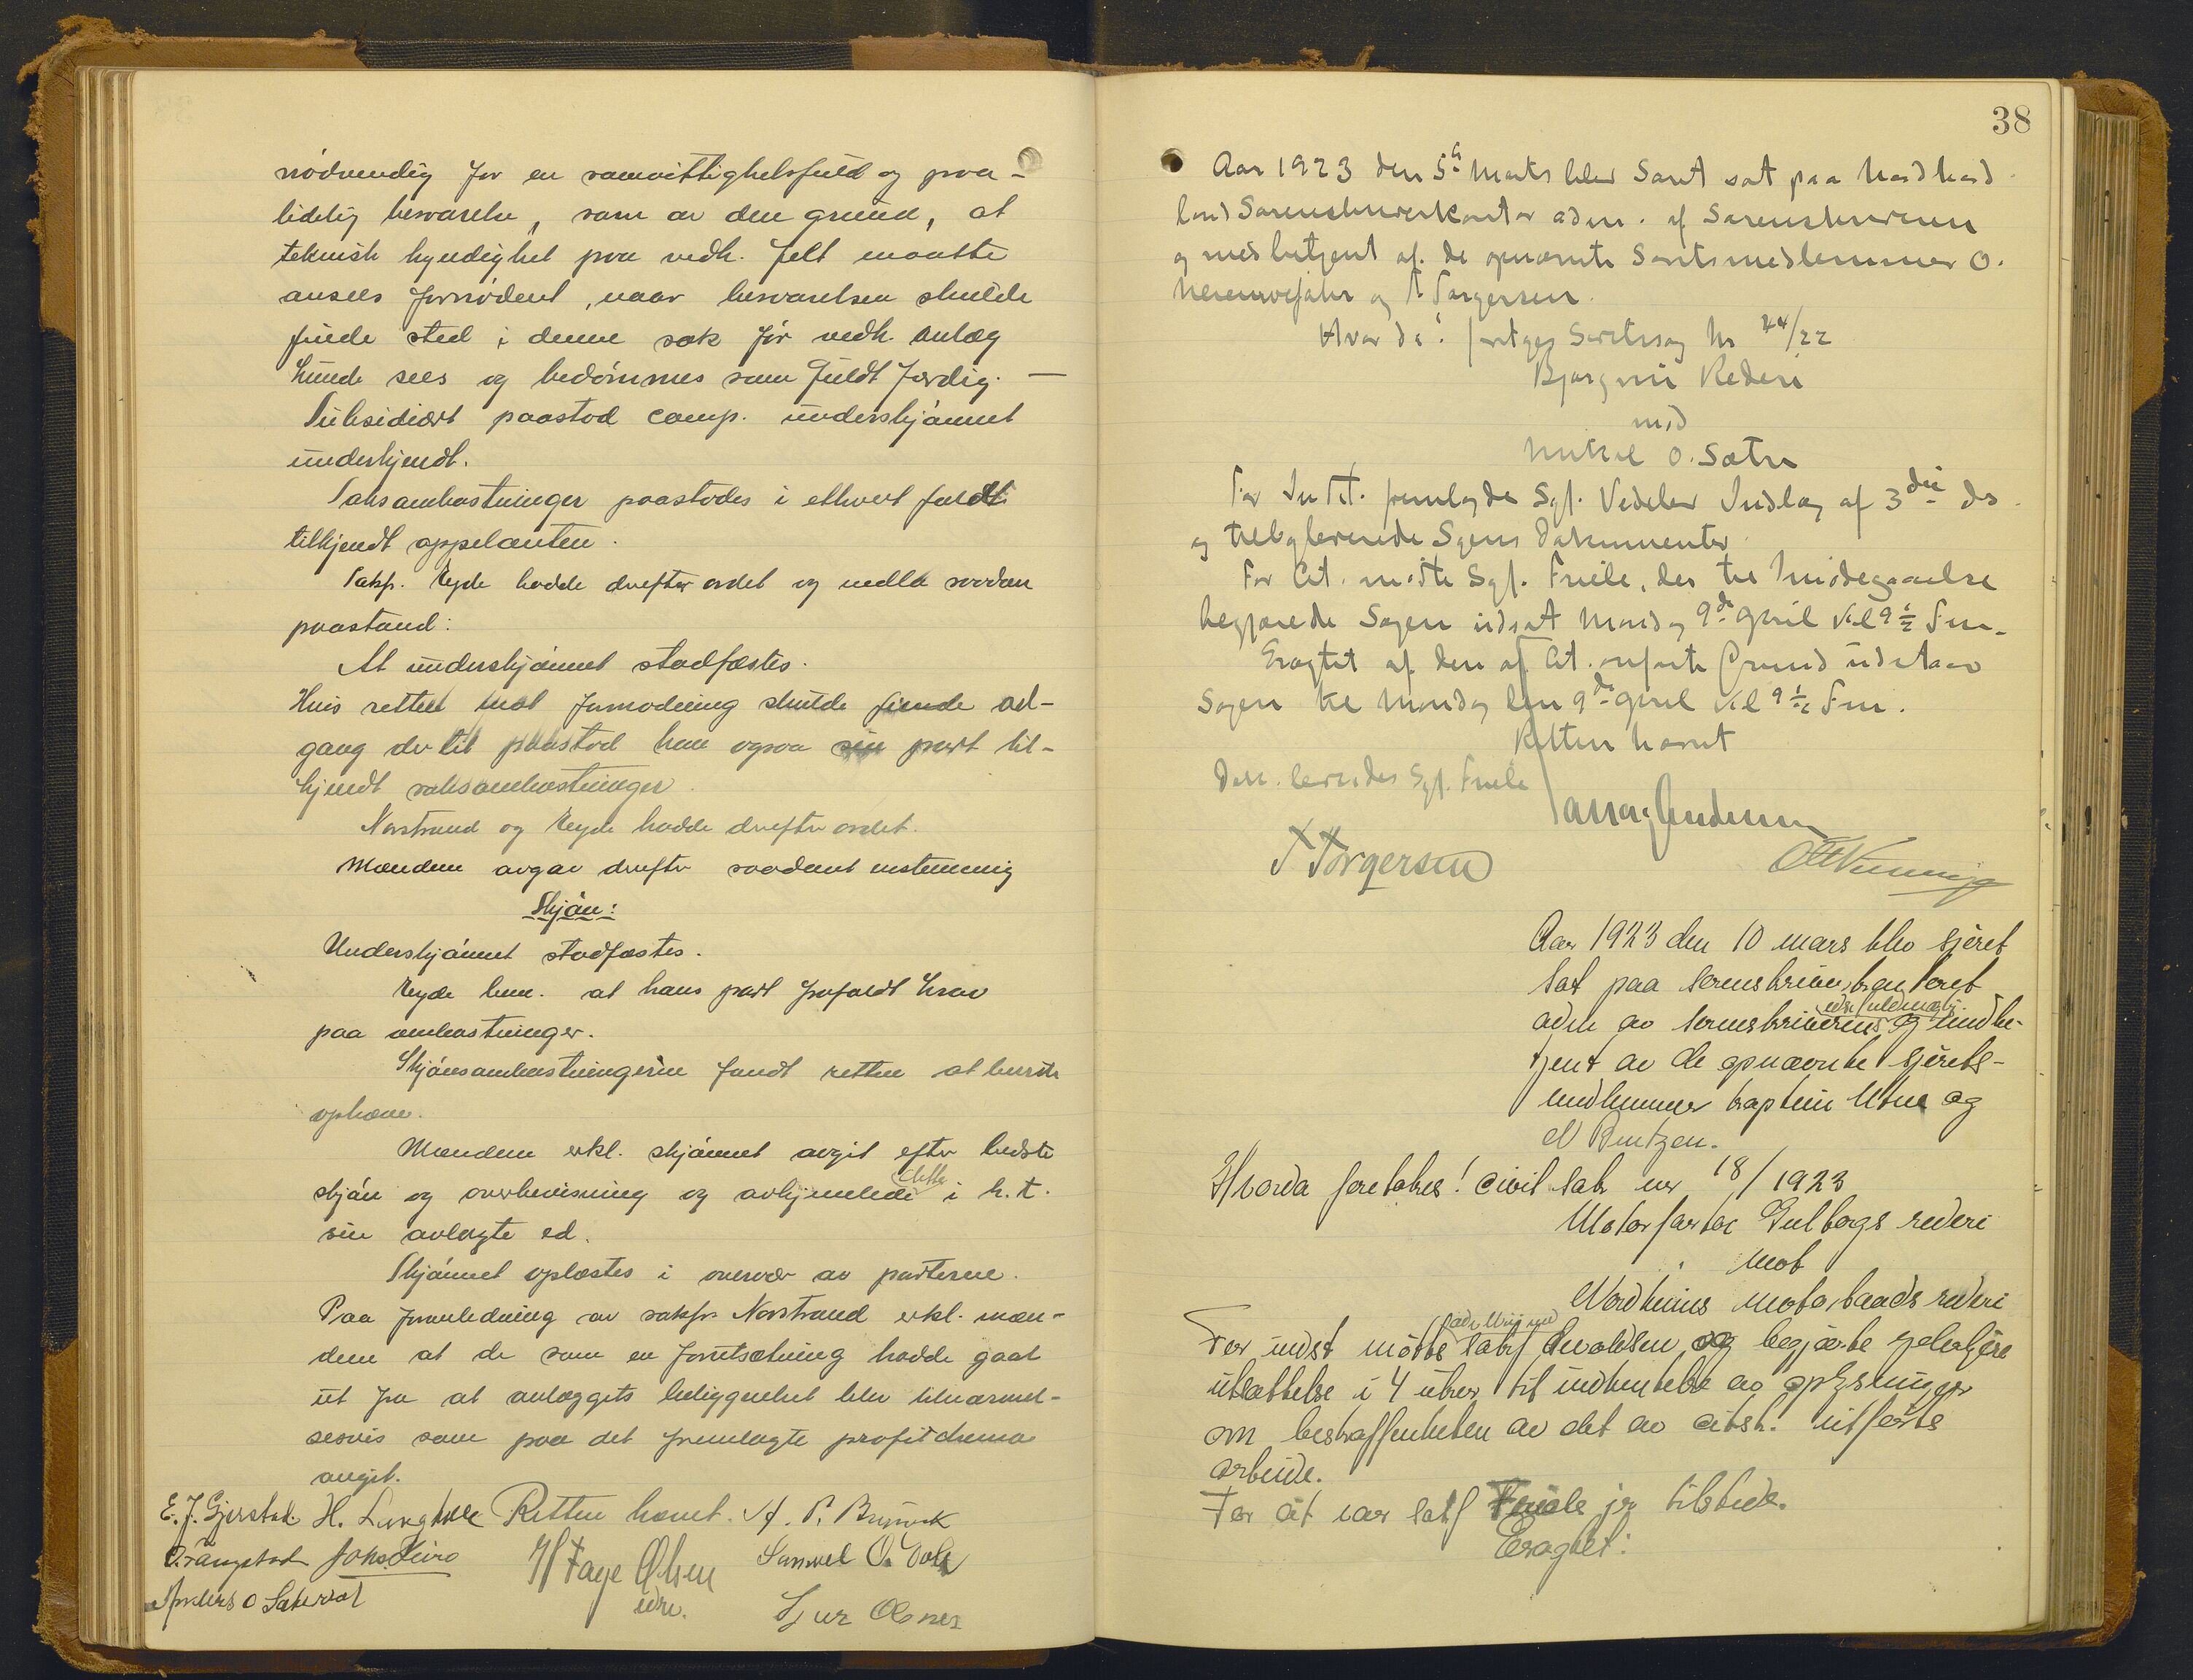 nødvendig for en samvittighetsfuld og paa-
lidelig besvarelse, som av den grund, at
teknisk kyndighet paa vedk. felt maatte
ansees fornødent, naar besvarelsen skulde
finde sted i denne sak før vedk. anlæg
kunde sees og bedømmes som fuldt færdig. —
Subsidiært paastod comp. underskjønnet
underkjendt.
Saksomkostninger paastodes i ethvert fald
tilkjendt appelanten.
Sakf. Ryde hadde derefter ordet og nedla saadan
paastand:
At underskjønnet stadfæstes.
Hvis retten mot formodning skulde finde ad-
gang dertil paastod han ogsaa sin part til-
kjendt saksomkostninger.
Norstrand og Ryde hadde derefter ordet.
Mændene avgav derefter saadant enstemmig
Skjøn:
Underskjønnet stadfæstes.
Ryde bem. at hans part frafaldt krav
paa omkostninger.
Skjønsomkostningerne fandt retten at burde
ophæve.
Mændene erkl. skjønnet avgit efter bedste
skjøn og overbevisning og avhjemlede dette i h. t.
sin avlagte ed.
Skjønnet oplæstes i overvær av parterne.
Paa foranledning av sakf. Norstrand erkl. mæn-
dene at de som en forutsætning hadde gaat
ut fra at anlæggets beliggenhet blev tilnærmel-
sesvis som paa det fremlagte
angit.
E. J. Gjerstad. H. Retten hævet. A. P.
Johs
H Faye Olsen Samuel O.
Anders O
edsv. Sjur Olsnes
38
Aar 1923 den 5te Marts blev Søret sat paa Nordhord
land Sorenskriverkontor adm. af Sorenskriveren
og medbetjent af de opnævnte Søretsmedlemmer O.
og T. Torgersen.
Hvor da: foretoges Søretssag No 44/22
Rederi
mod
O. Sætre
For fremlagde Sgf. Vedeler Indlæg af 3die ds.
og tilbageleverede Sagens Dokumenter.
For Cit. mødte Sgf. Friele, der til Imødegaaelse
begjærede Sagen udsat Mandag 9de April Kl 9 1/2 Fm.
Eragtet af den af Cit. anførte Grund udstaar
Sagen til Mandag den 9de April Kl 9 1/2 Fm.
Retten hævet
Dok. leveredes Sgf. Friele
T Torgersen
Aar 1923 den 10 mars blev sjøret
sat paa sorenskriverkontoret
adm av sorenskriverens edsv. fuldmægtig og medbe-
tjent av de opnævnte sjørets-
medlemmer kaptein Utne og
N Bentzen.
Hvorda foretokes: civil sak nr 18/1923
Motorfartøi Gulbergs rederi
mot
Nordheims motorbaads rederi
For indst møtte sakf og begjærte
utsættelse i 4 uker til indhentelse av oplysninger
om beskaffenheten av det av citsk. utførte
arbeide.
For cit var sakf Friele jr tilstede.
Eragtet: